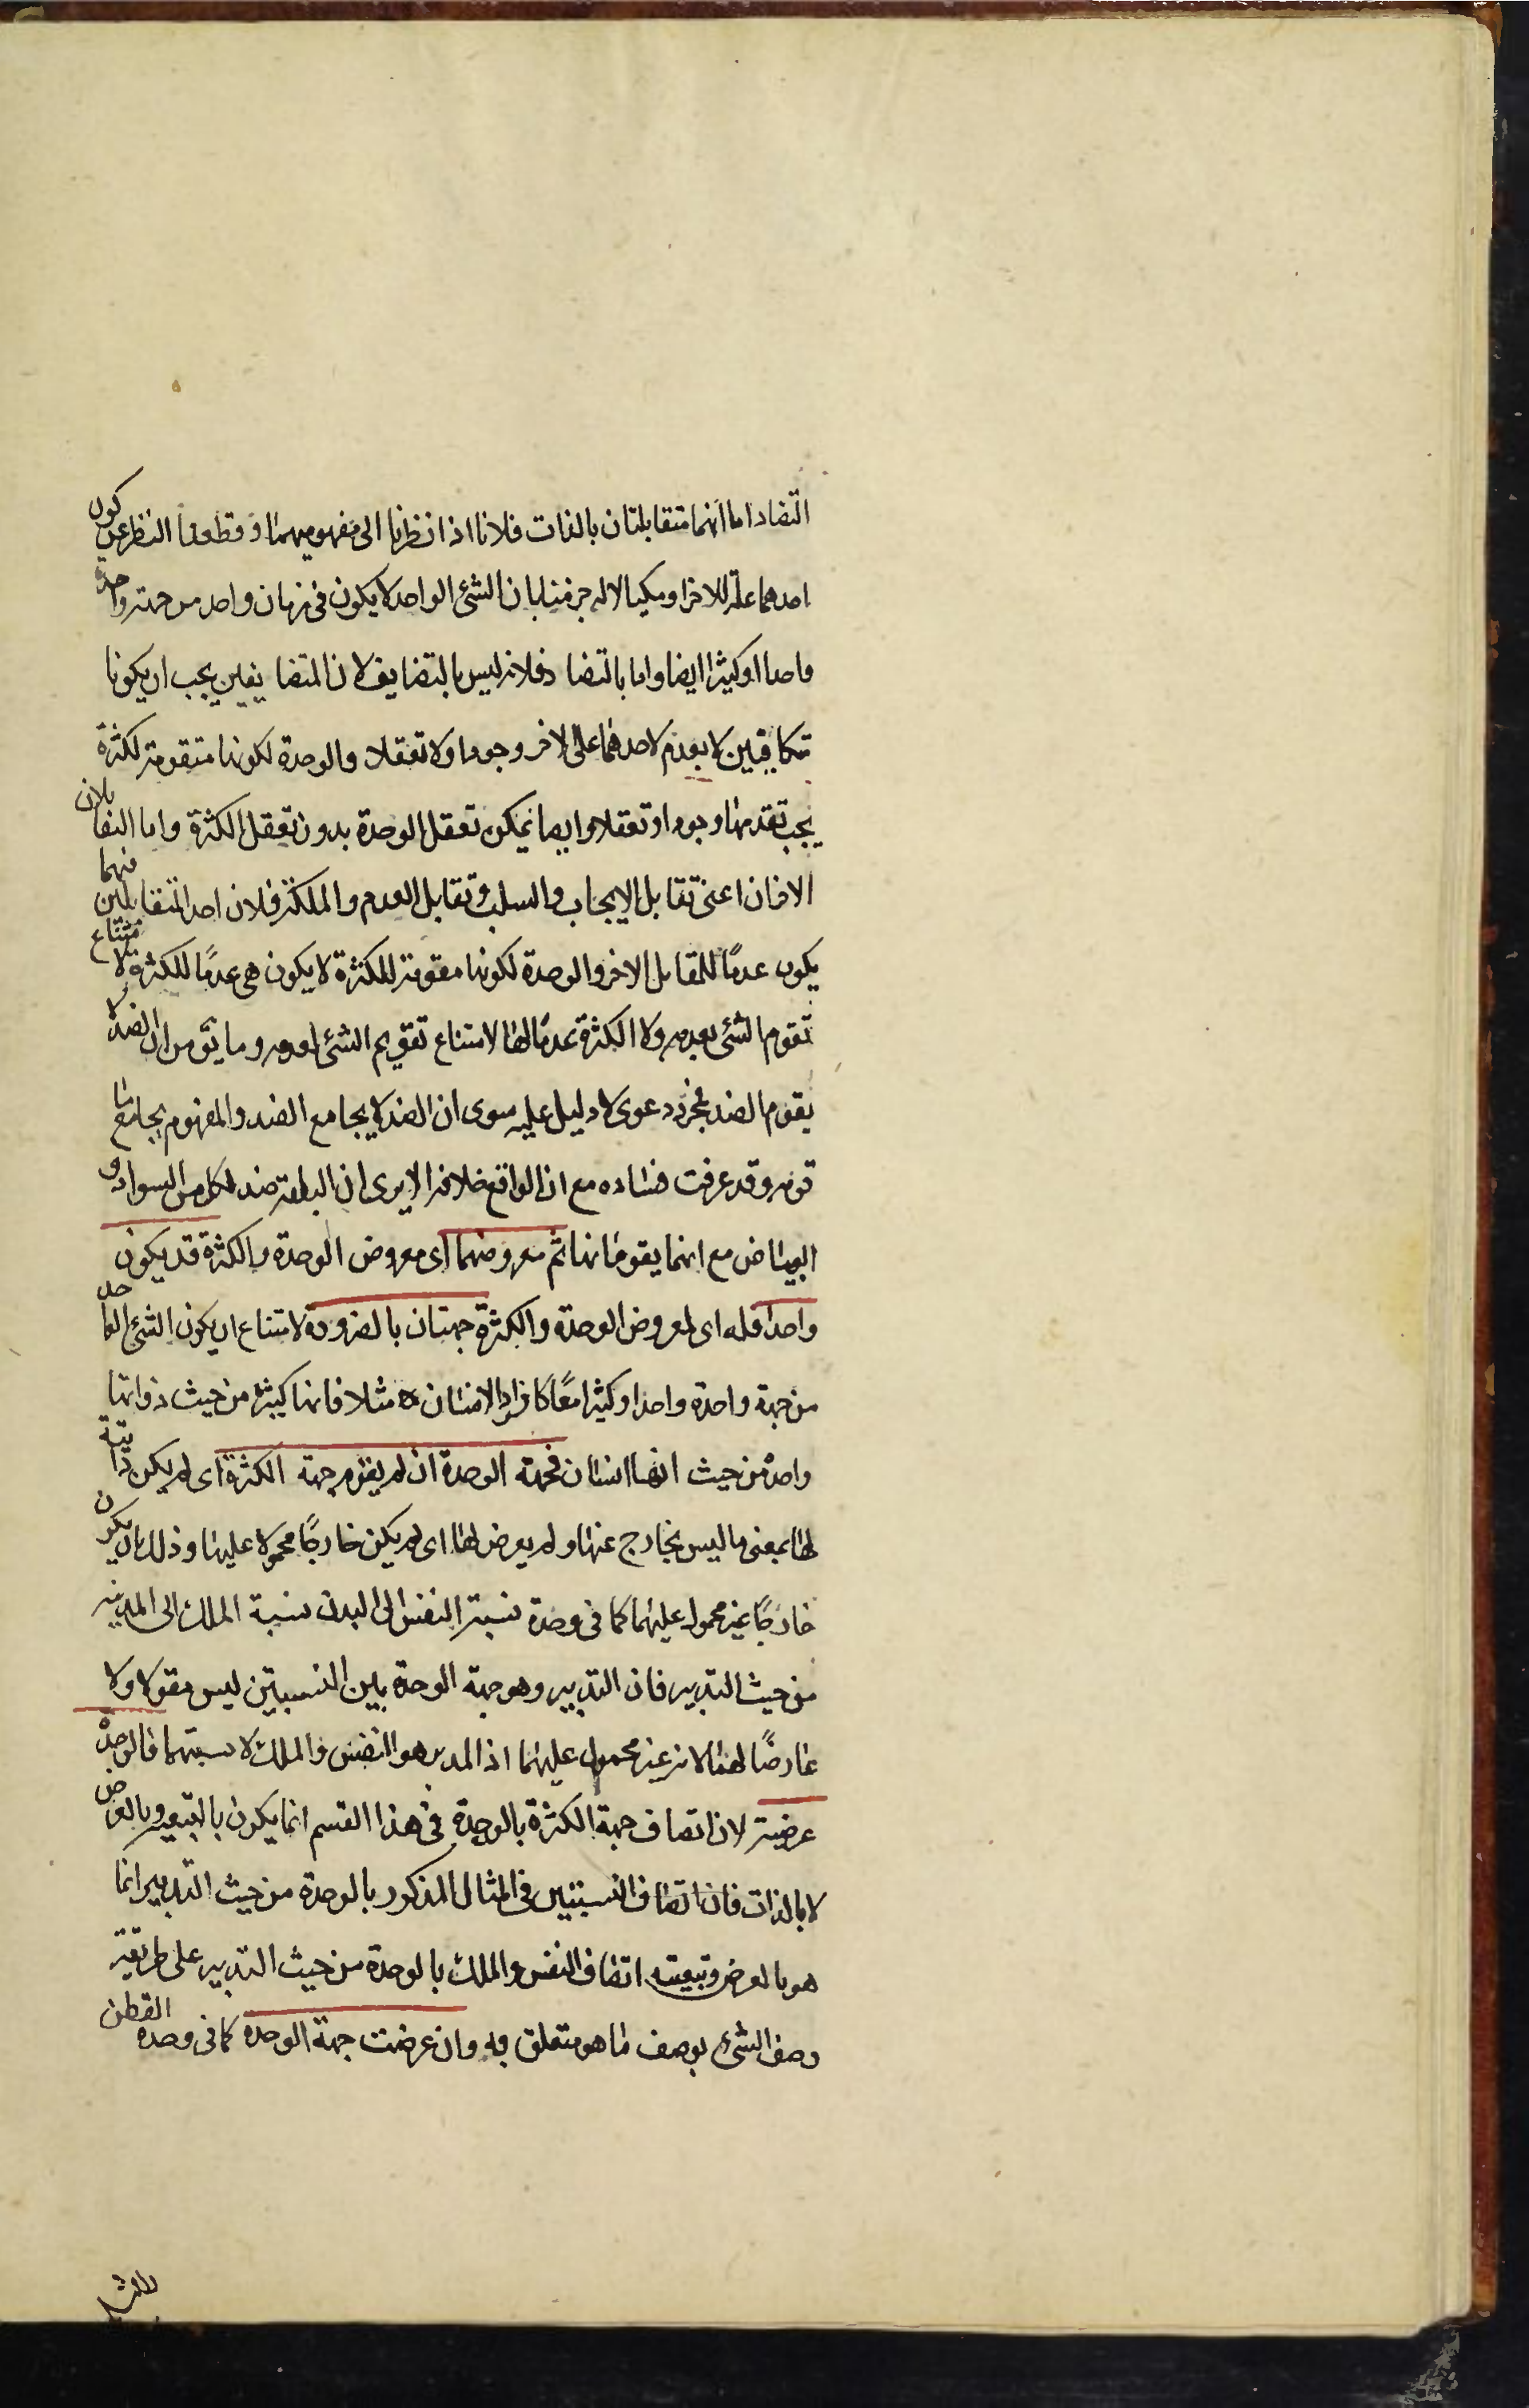 التضاد اما انهما متقابلتان بالذات فلانا اذا نظرنا الى مفهوميهما وقطعنا النظر عن كون
احدهما علة للاخر او مكيالا له جزمنا بان الشئ الواحد لا يكون فى زمان واحد من جهة واحدة
واحدا وكثيرا ايضا واما بالتضاد فلانه ليس بالتضايف لان المتضايفين يجب ان يكونا
متكافيين لا تقدم لاحدهما على الاخر وجودا ولا تعقلا والوحدة لكونها متقومة لكثرة
يجب تقدمها وجودا وتعقلا وايضا يمكن تعقل الوحدة بدون تعقل الكثرة واما التقابلان
الاخران اعنى تقابل الايجاب والسلب وتقابل العدم والملكة فلان احد المتقابلين فيهما
يكون عدمًا للمقابل الاخر والوحدة لكونها مقومة للكثرة لا يكون هى عدمًا للكثرة لامتناع
تقوم الشئ بعدمه ولا الكثرة عدمًا لها لامتناع تقويم الشئ لعدمه وما يق من ان الضد لا
يقوم الضد مجرد دعوى لا دليل عليه سوى ان الضد لا يجامع الضد والمفهوم يجامع ما
قومه وقد عرفت فساده مع ان الواقع خلافه الا يرى ان البلقة ضد لكل من السواد و
البياض مع انهما يقومانها ثم معروضهما اى معروض الوحدة والكثرة قد يكون
واحدا فله اى لمعروض الوحدة والكثرة جهتان بالضرورة لامتناع ان يكون الشئ الواحد
من جهة واحدة واحدا وكثيرا معًا كافراد الانسان مثلا فانها كثيرة من حيث ذواتها
واحدة من حيث انها انسان فجهة الوحدة ان لم يقوم جهة الكثرة اى لم يكن ذاتية
لها بمعنى ما ليس بخارج عنها ولم يعرض لها اى لم يكن خارجًا محمولا عليها وذلك بان يكون
خارجًا غير محمول عليهما كما فى وحدة نسبة النفس الى البدن نسبة الملك الى المدينة
من حيث التدبير فان التدبير وهو جهة الوحدة بين النسبتين ليس مقولا ولا
عارضًا لهما لانه غير محمول عليهما اذ المدبر هو النفس والملك لا نسبتهما فالوحدة
عرضية لان اتصاف جهة الكثرة بالوحدة فى هذا القسم انما يكون بالتبعية وبالعرض
لا بالذات فان اتصاف النسبتين فى المثال المذكور بالوحدة من حيث التدبير انما
هو بالعرض وتبعية اتصاف النفس والملك بالوحدة من حيث التدبير على طريقة
وصف الشئ بوصف ما هو متعلق به وان عرضت جهة الوحدة كما فى وحدة القطن